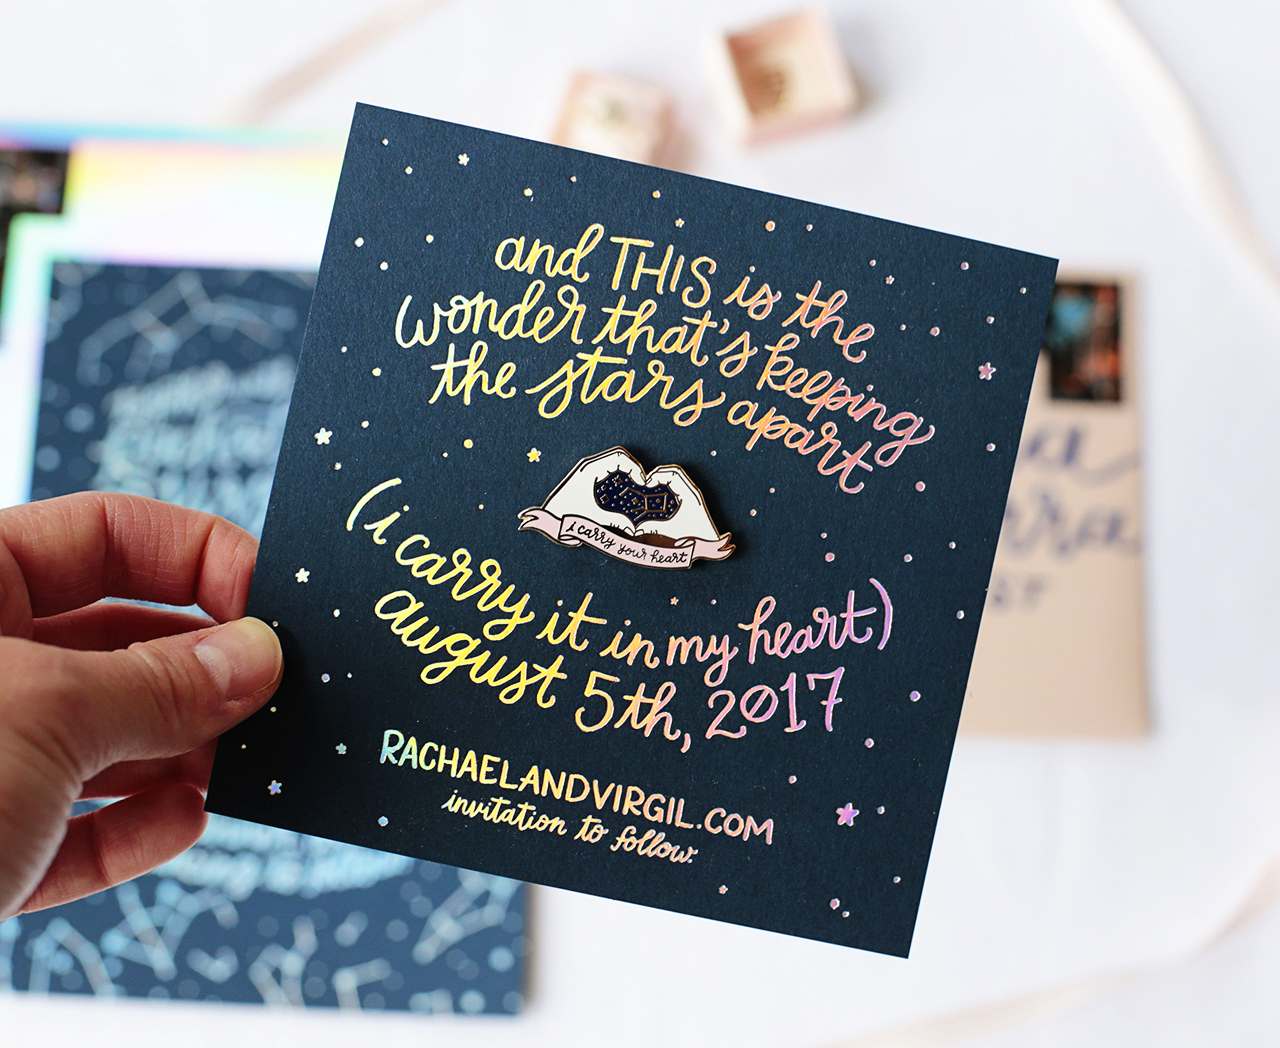 and THIS is the
wonder that's keeping
the stars apart
i carry your heart
(i carry it in my heart)
august 5th, 2017
RACHAELANDVIRGIL.COM
invitation to follow.